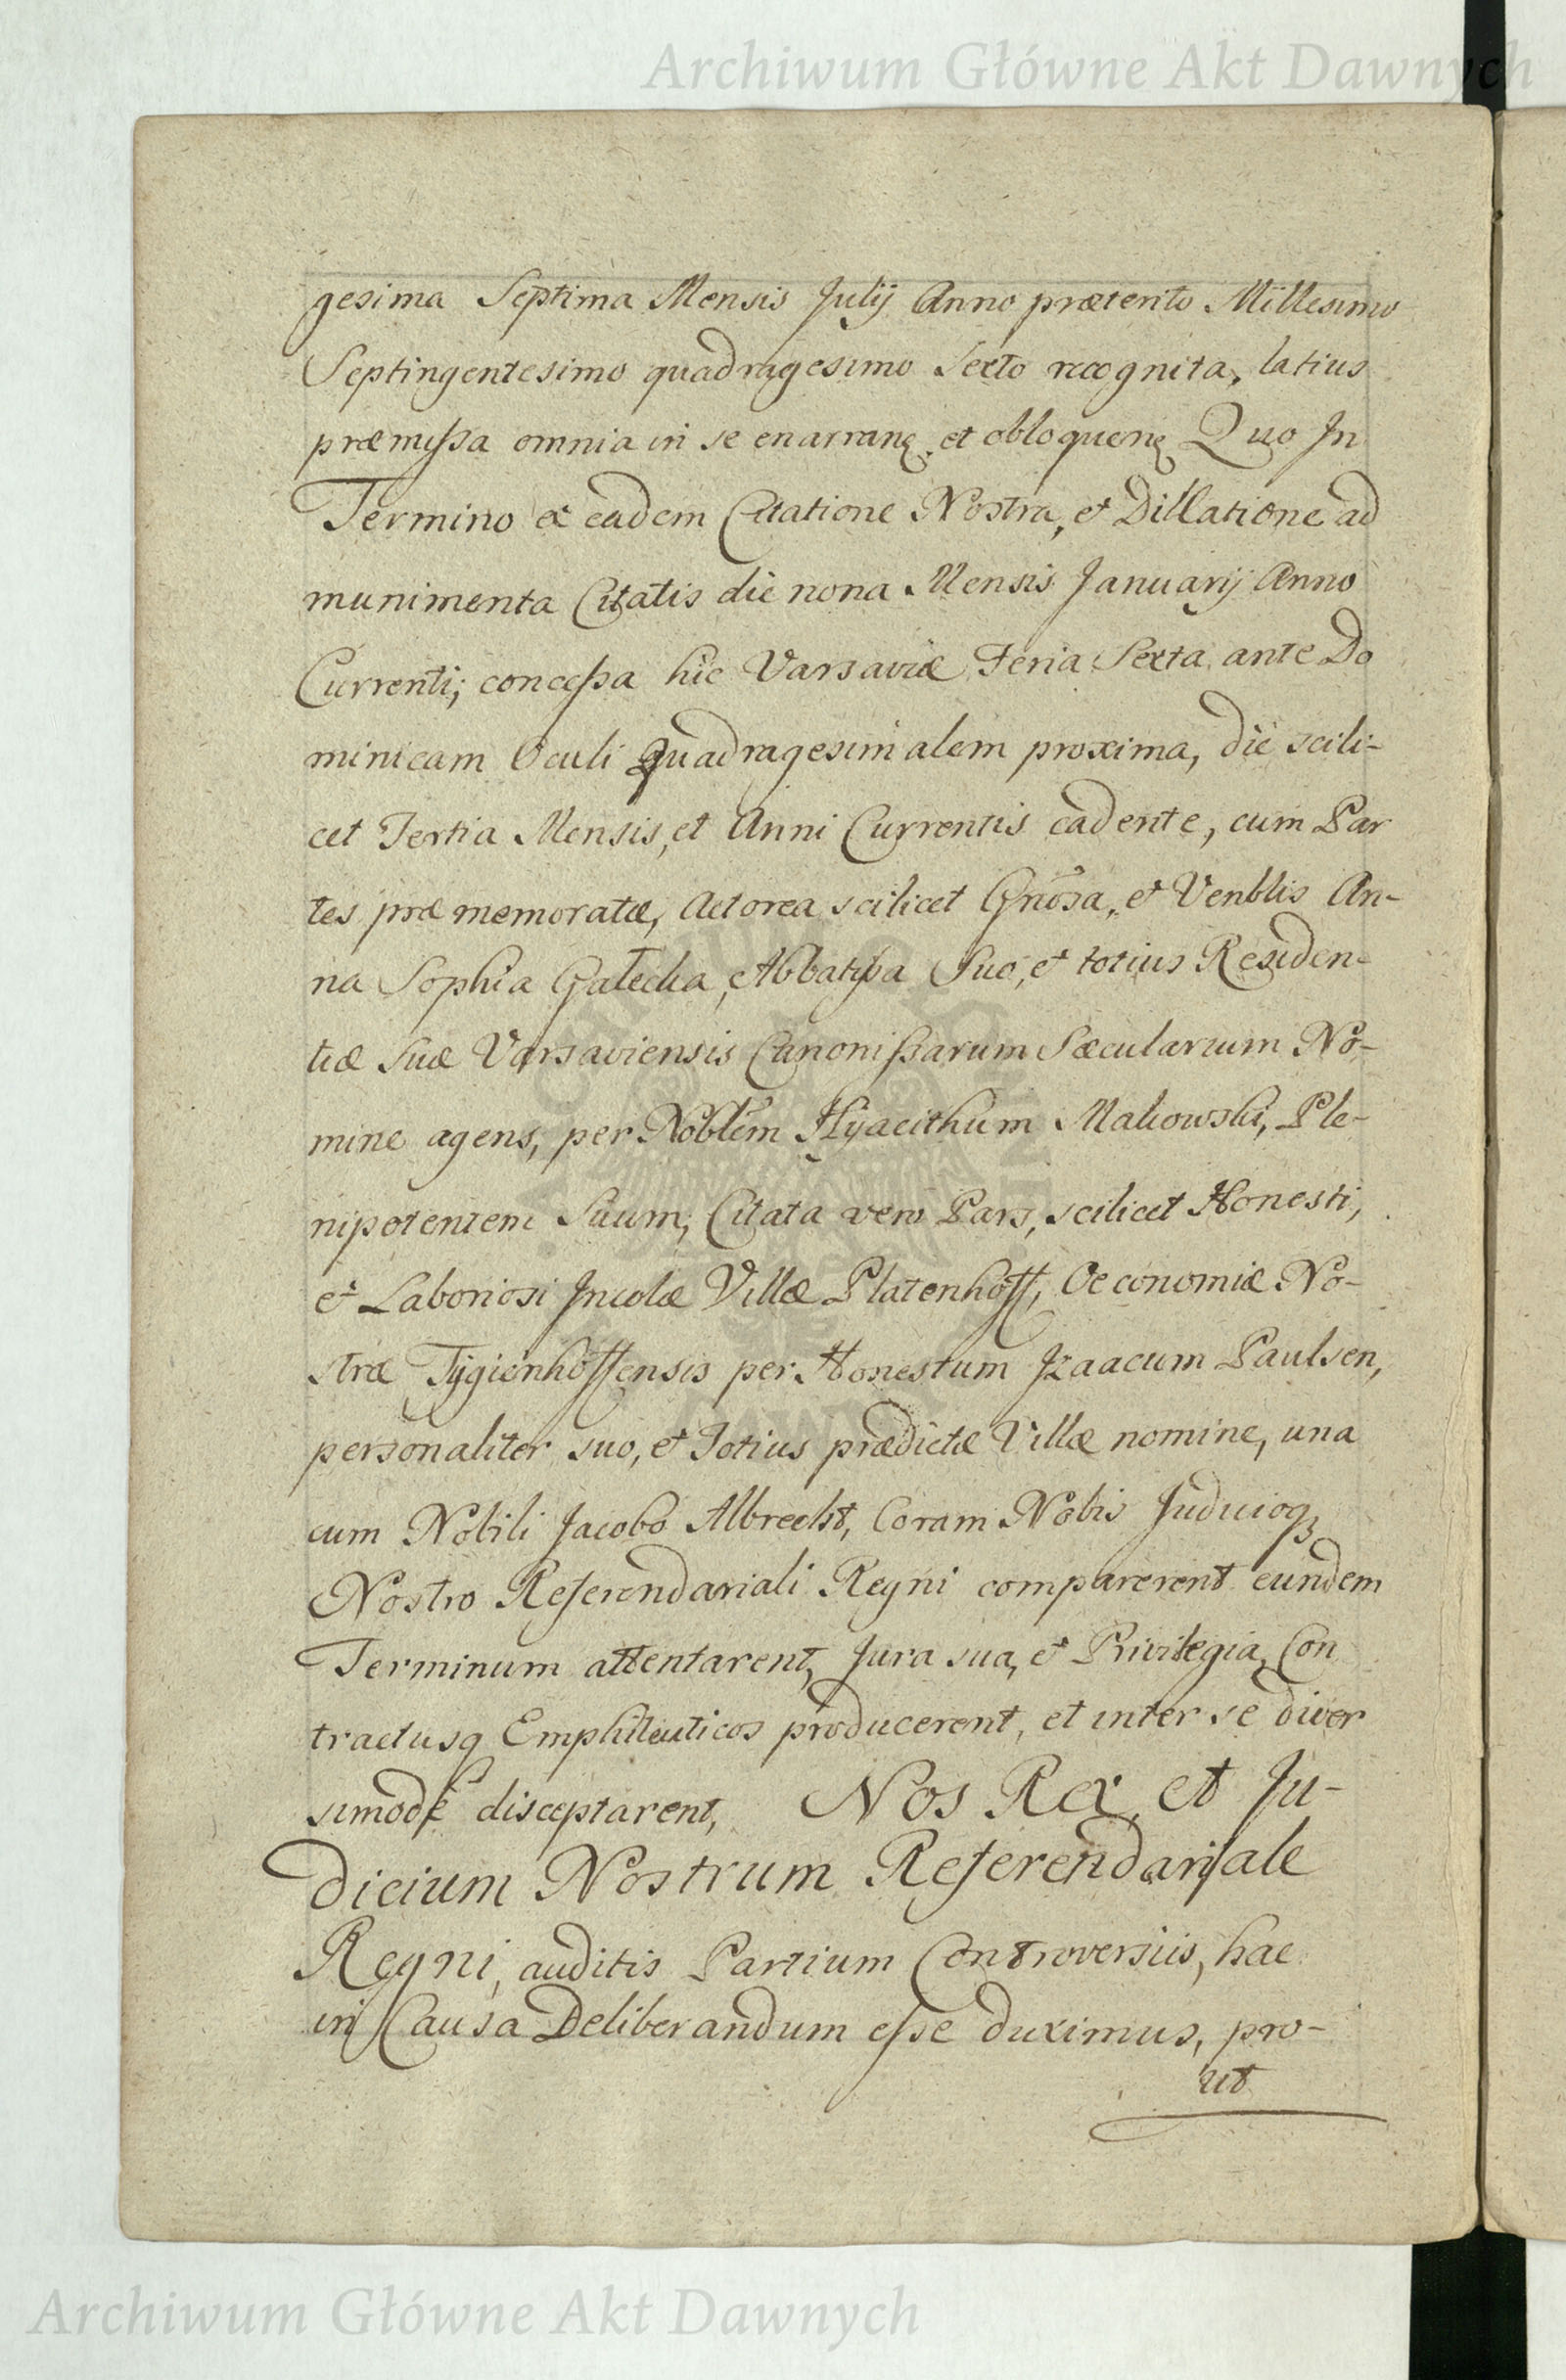 Archiwum Główne Akt Dawnych
gesima Septima Mensis Julij Anno præterito Millesimo
Septingentesimo quadragesimo Sexto recognita, latius
præmissa omnia in se enarranꝫ, et obloquenꝫ Quo In
Termino ex eadem Citatione Nostra, et Dillatione ad
munimenta Citatis die nona Mensis Januarij Anno
Currenti; concessa hic Varsaviæ Feria Sexta ante Do
minicam Oculi Quadragesimalem proxima, die scili-
cet Tertia Mensis, et Anni Currentis cadente, cum Par
tes præmemoratæ, Actorea scilicet Gnosa, et Venblis An-
na Sophia Galecka, Abbatissa Suo, et totius Residen-
tiæ Suæ Varsaviensis Canonissarum Sæcularium No-
mine agens, per Noblem Hyacithum Makowski, Ple-
nipotentem Suum; Citata vero Pars, scilicet Honesti,
et Laboriosi Incolæ Villæ Platenhoff, Oeconomiæ No-
stræ Tygienhoffensis per Honestum Izaacum Paulsen,
personaliter suo, et Totius prædictæ Villæ nomine, una
cum Nobili Jacobo Albrecht, Coram Nobis Judicioqꝫ
Nostro Referendariali Regni comparerent eundem
Terminum attentarent, Jura sua, et Privilegia, Con
tractusq Emphiteuticos producerent, et inter se diver
simodè disceptarent, Nos Rex, et Ju-
dicium Nostrum Referendarijale
Regni, auditis Partium Controversiis, hac
in Causa Deliberandum esse duximus, pro-
ut
Archiwum Główne Akt Dawnych